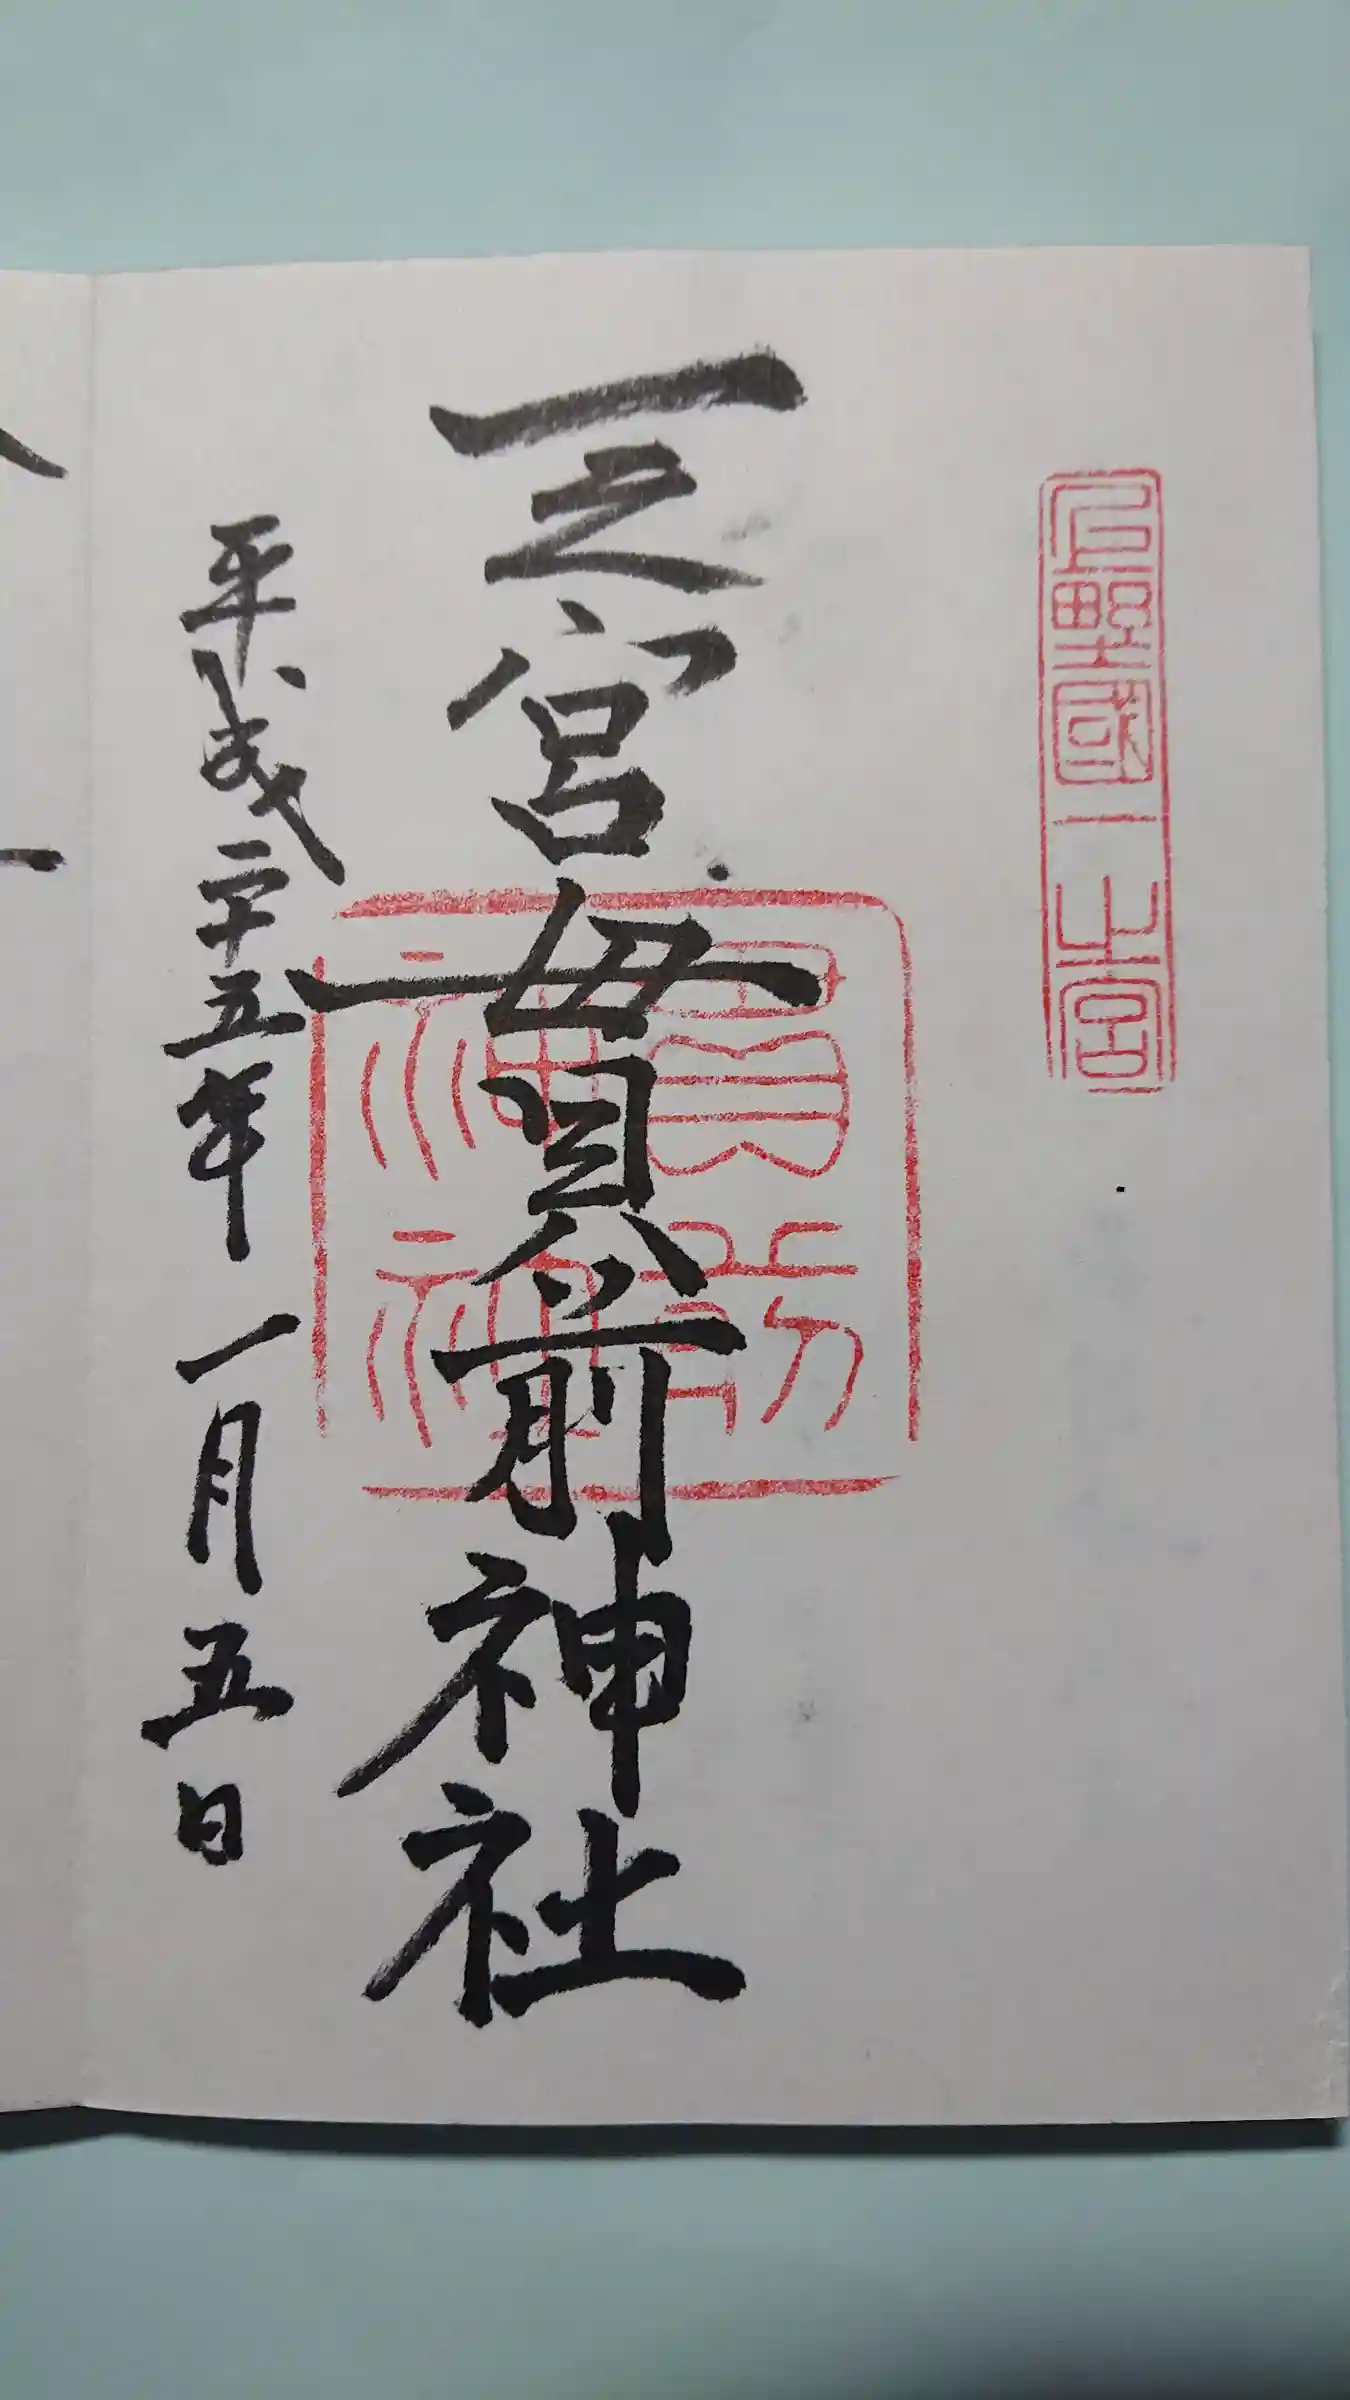 上野國一之宮
一之宮貫前神社
貫前神社
平成二十五年一月五日